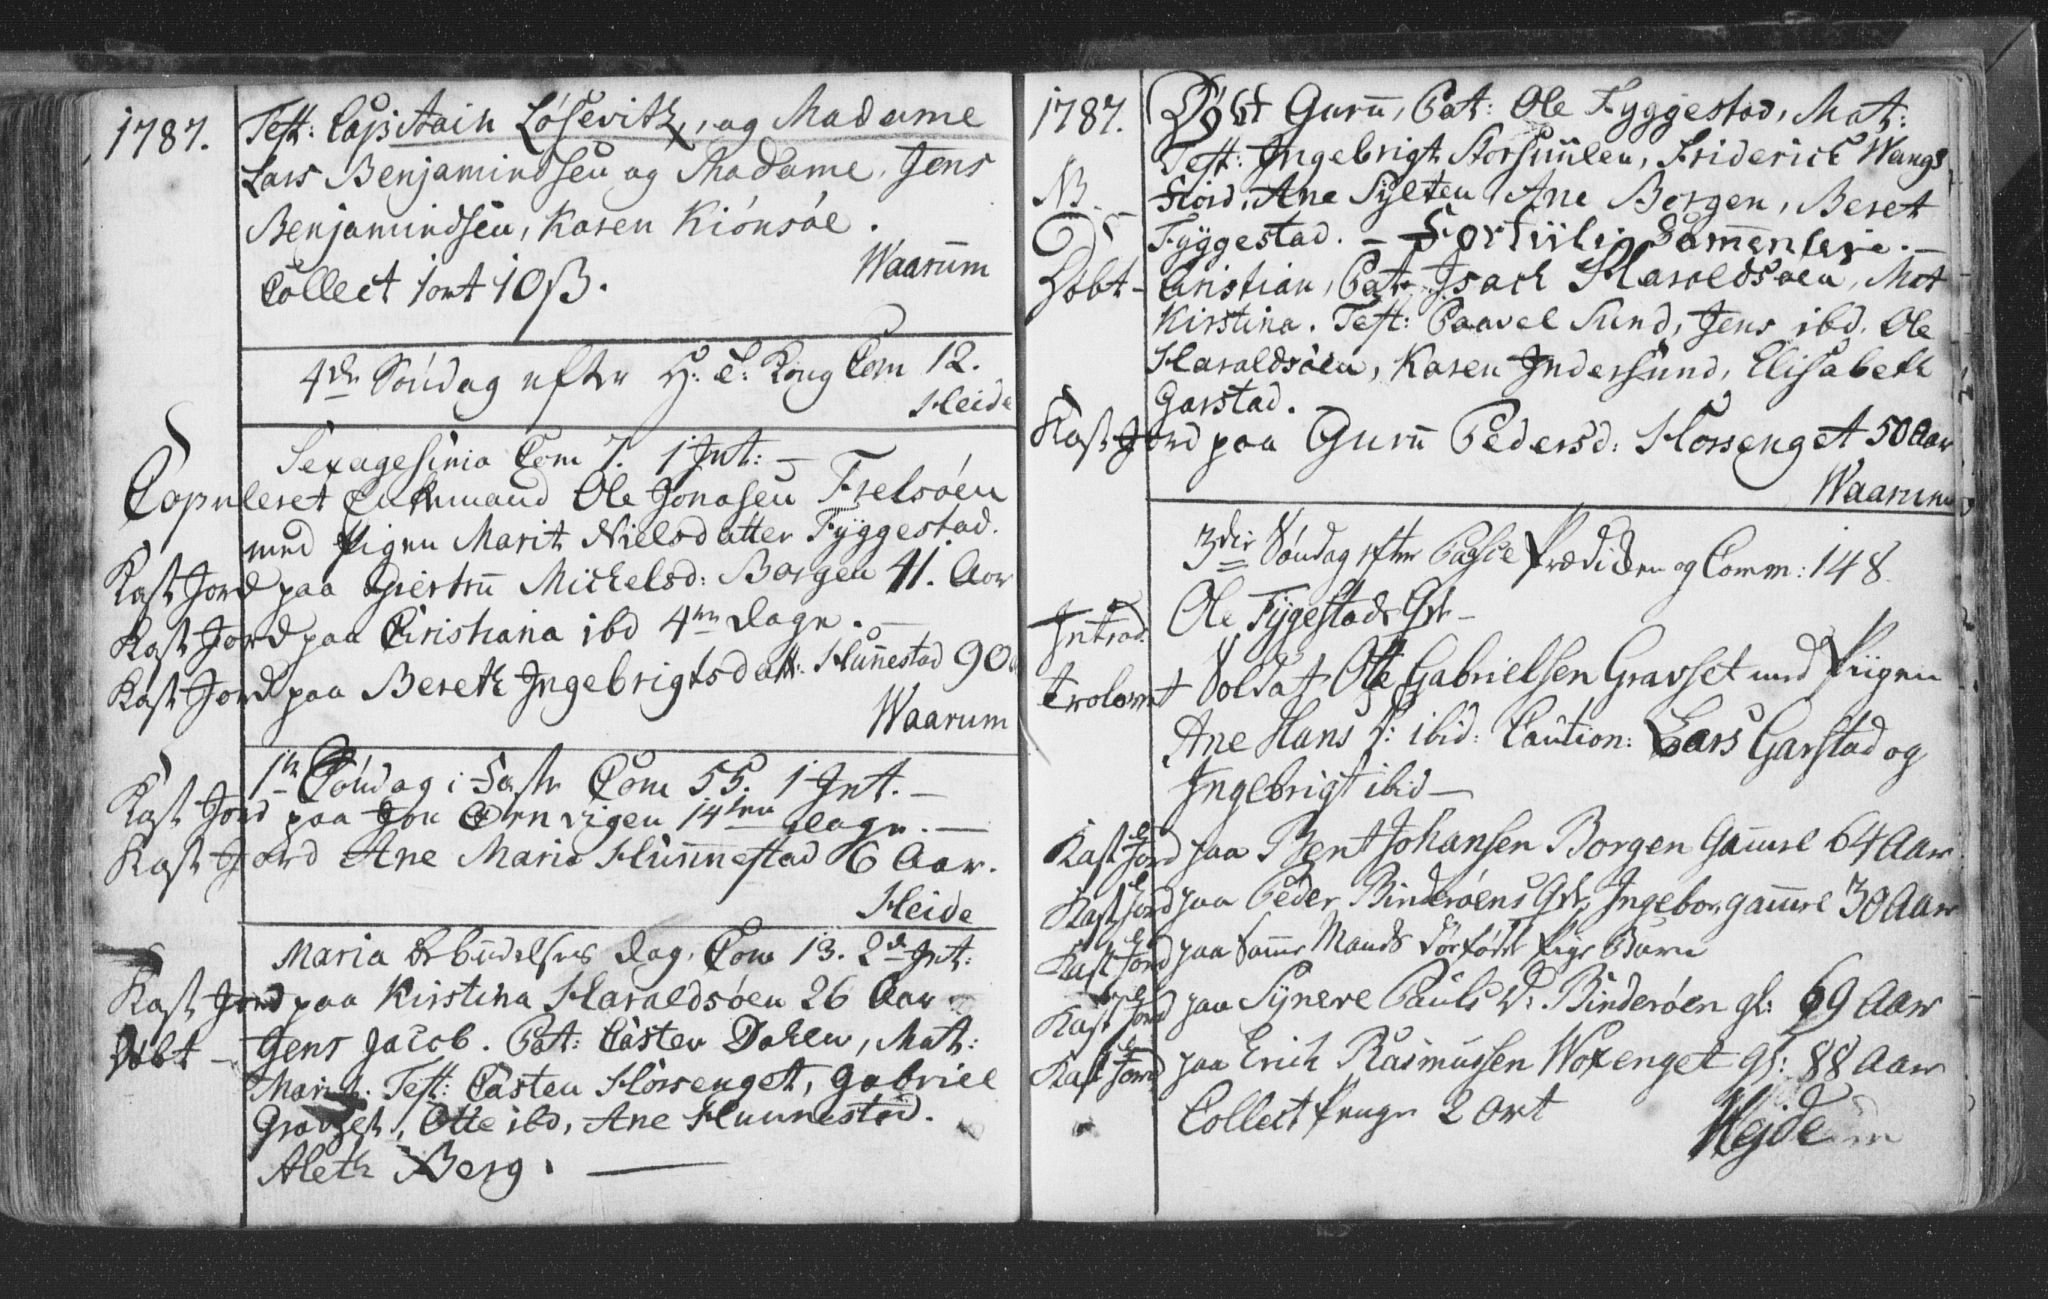 1787.
Test: Capitain Løsevitz, og Madame
Lars Benjamindsen og Madame, Jens
Benjamindsen, Karen Kiónsøe.
Waarum
Collect 1 ort 10 ß.
4de Søndag efter H: 3: Kong Com 12.
Heide
Sexagesima Com 7. 1 Int: —
Copuleret Enkemand Ole Jonasen Frelsøen
med Pigen Marit Nielsdatter Fyggestad.
Kast Jord paa Giertru Michelsd: Borgen 41. Aar
Kast Jord paa Christiana ibd 4re Dage. —
Kast Jord paa Bereth Ingebrigtsdatt: Hunnestad 90
Waarum
1te Søndag i Faste Com 55. 1 Int. —
Kast Jord paa Jon Ørnvigen 14ten Dage. —
Kast Jord Ane Maria Hunnestad 6 Aar.
Heide
Maria Bebudelses Dag. Com 13. 2de Int:
Kast Jord paa Kirstina Haraldsøen 26 Aar.
Døbt — Jens Jacob. Pat: Casten Dahlen, Mat:
Marit. Test: Casten Horsenget, Gabriel
Gravset, Otte ibd, Ane Hunnestad.
Aleth Berg. —
1787. Døbt Guru, Pat: Ole Fyggestad, Mat:
Test: Ingebrigt Storsunlen, Friderich Wangs
NB. fiord, Ane Sylten, Ane Borgen, Beret
Fyggestad. — Fortiilig Sammenleie. —
Døbt — Christian, Pat: Isach Haraldsøen, Mat
Kirstina. Test: Paavel Sund, Jens ibd. Ole
Haraldsøen, Karen Indersund, Elisabeth
Garstad.
Kast Jord paa Guru Pedersd: Horsenget 50 Aar
Waarum
3die Søndag efter Pasce Prædiken og Comm: 148.
Introd: Ole Fygestads Qv —
Trolovet Soldat Ole Gabrielsen Gravset med Piigen
Ane Hans D: ibid: Caution: Lars Garstad og
Ingebrigt ibid —
Kast Jord paa Bent Johansen Borgen Gammel 64 Aar
Kast Jord paa Peder Binderøens Qv, Ingebor, gammel 30 Aar
Kast Jord paa Samme Mands Børn
Kast Jord paa Synere Pauls D: Binderøen gl: 69 Aar
Kast Jord paa Erich Rasmussen Woxenget gl: 88 Aar
Collect Penge 2 Ort
Hejde